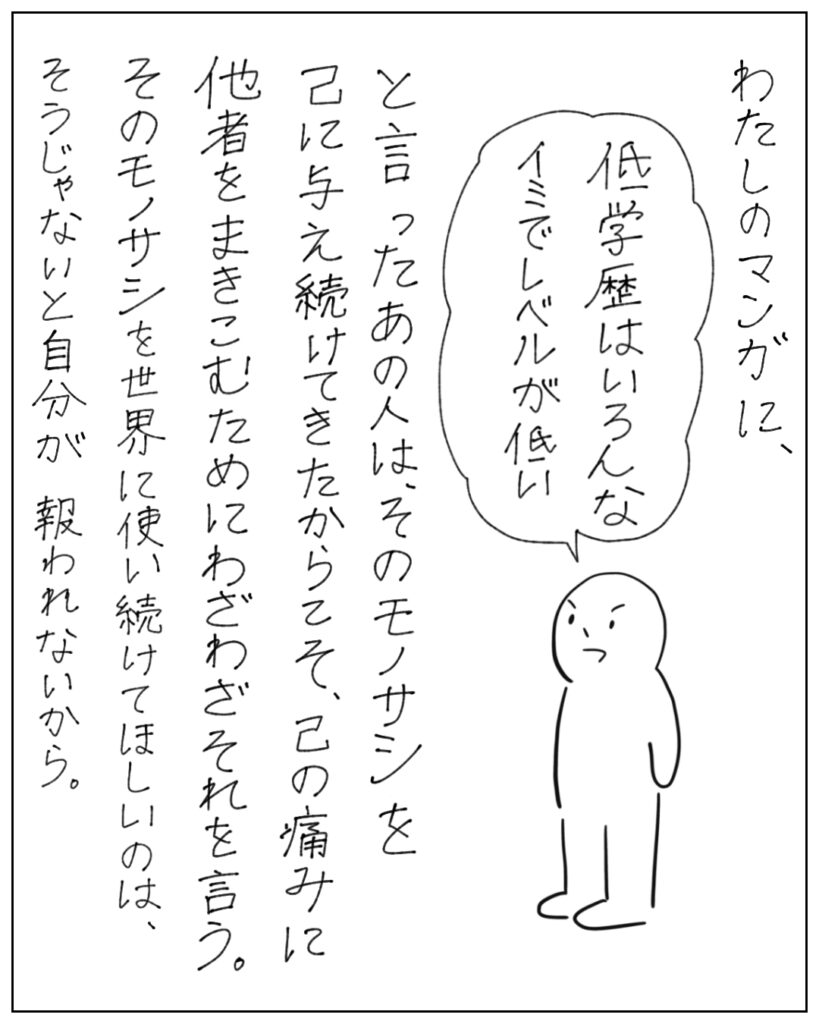 わたしのマンガに、
低学歴はいろんな
イミでレベルが低い
と言ったあの人は、そのモノサシを
己に与え続けてきたからこそ、己の痛みに
他者をまきこむためにわざわざそれを言う。
そのモノサシを世界に使い続けてほしいのは、
そうじゃないと自分が報われないから。